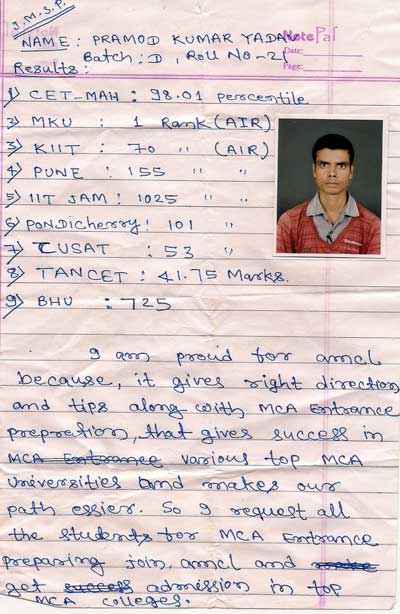 J.M.S.P.
NAME : PRAMOD KUMAR YADAV
NotePal
Batch : D, Roll No - 21
Date:
Page:
Results :
1) CET-MAH : 98.01 percentile
2) MKU : 1 Rank (AIR)
3) KIIT : 70 " (AIR)
4) PUNE : 155 " "
5) IIT JAM : 1025 " "
6) PONDicherry : 101 "
7) CUSAT : 53 "
8) TANCET : 41.75 Marks.
9) BHU : 725
I am proud for amcl
because, it gives right direction
and tips along with MCA Entrance
prepration, that gives success in
MCA Entrance various top MCA
Universities and makes our
path essier. So I request all
the students for MCA Entrance
preparing join amcl and
get success admission in top
MCA colleges.